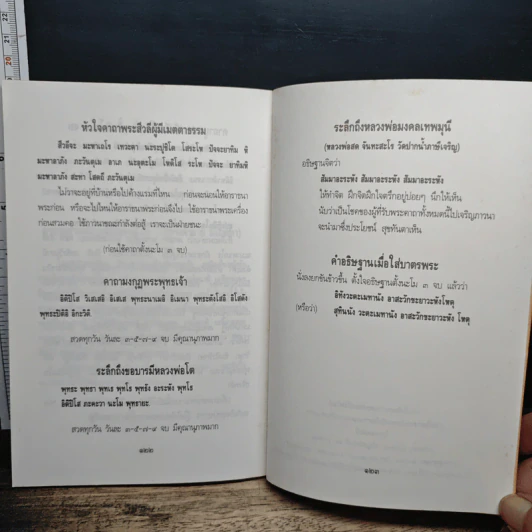 หัวใจคาถาพระสีวลีผู้มีเมตตาธรรม
สีวลีจะ มะหาเถโร เทวะตา นะระปูชิโต โสระโห ปัจจะยาทิม หิ
มะหาลาภัง ภะวันตุเม ลาเภ นะอุตะโม โหติโส ระโห ปัจจะ ยาทิมหิ
มะหาลาภัง สะทา โสตถี ภะวันตุเม
ไม่ว่าจะอยู่ที่บ้านหรือไปค้างแรมที่ไหน ก่อนจะนอนให้อาราธนา
พระก่อน หรือจะไปไหนให้อาราธนาพระก่อนจึงไป ใช้อาราธนาพระเครื่อง
ก่อนสวมคอ ใช้ภาวนาขณะกำลังต่อสู้ เราจะเป็นฝ่ายชนะ
(ก่อนใช้คาถาตั้งนะโม ๓ จบ)
คาถามงกุฎพระพุทธเจ้า
อิติปิโส วิเสเสอิ อิเสเส พุทธะนาเมอิ อิเมนา พุทธะตังโสอิ อิโสตัง
พุทธะปิติอิ
สวดทุกวัน วันละ ๓-๕-๗-๙ จบ มีคุณานุภาพมาก
ระลึกถึงขอบารมีหลวงพ่อโต
พุทธะ พุทธา พุทเธ พุทโธ พุทธัง อะระหัง พุทโธ
อิติปิโส ภะคะวา นะโม พุทธายะ
สวดทุกวัน วันละ ๓-๕-๗-๙ จบ มีคุณานุภาพมาก
๑๒๒
ระลึกถึงหลวงพ่อมงคลเทพมุนี
(หลวงพ่อสด จันทะสะโร วัดปากน้ำภาษีเจริญ)
อธิษฐานจิตว่า
สัมมาอะระหัง สัมมาอะระหัง สัมมาอะระหัง
ให้กำจิต ฝึกจิตฝึกใจตรึกอยู่บ่อยๆ นึกให้เห็น
นับว่าเป็นโชคของผู้ที่รับพระคาถาทั้งหมดนี้ไปเจริญภาวนา
จะนำมาซึ่งประโยชน์ สุขทันตาเห็น
คำอธิษฐานเมื่อใส่บาตรพระ
นั่งลงยกขันข้าวขึ้น ตั้งใจอธิษฐานตั้งนะโม ๓ จบ แล้วว่า
อิทังวะตะเมทานัง อาสะวักขะยาวะหังโหตุ
(หรือว่า) สุทินนัง วะตะเมทานัง อาสะวักขะยาวะหัง โหตุ
๑๒๓
20 21 22